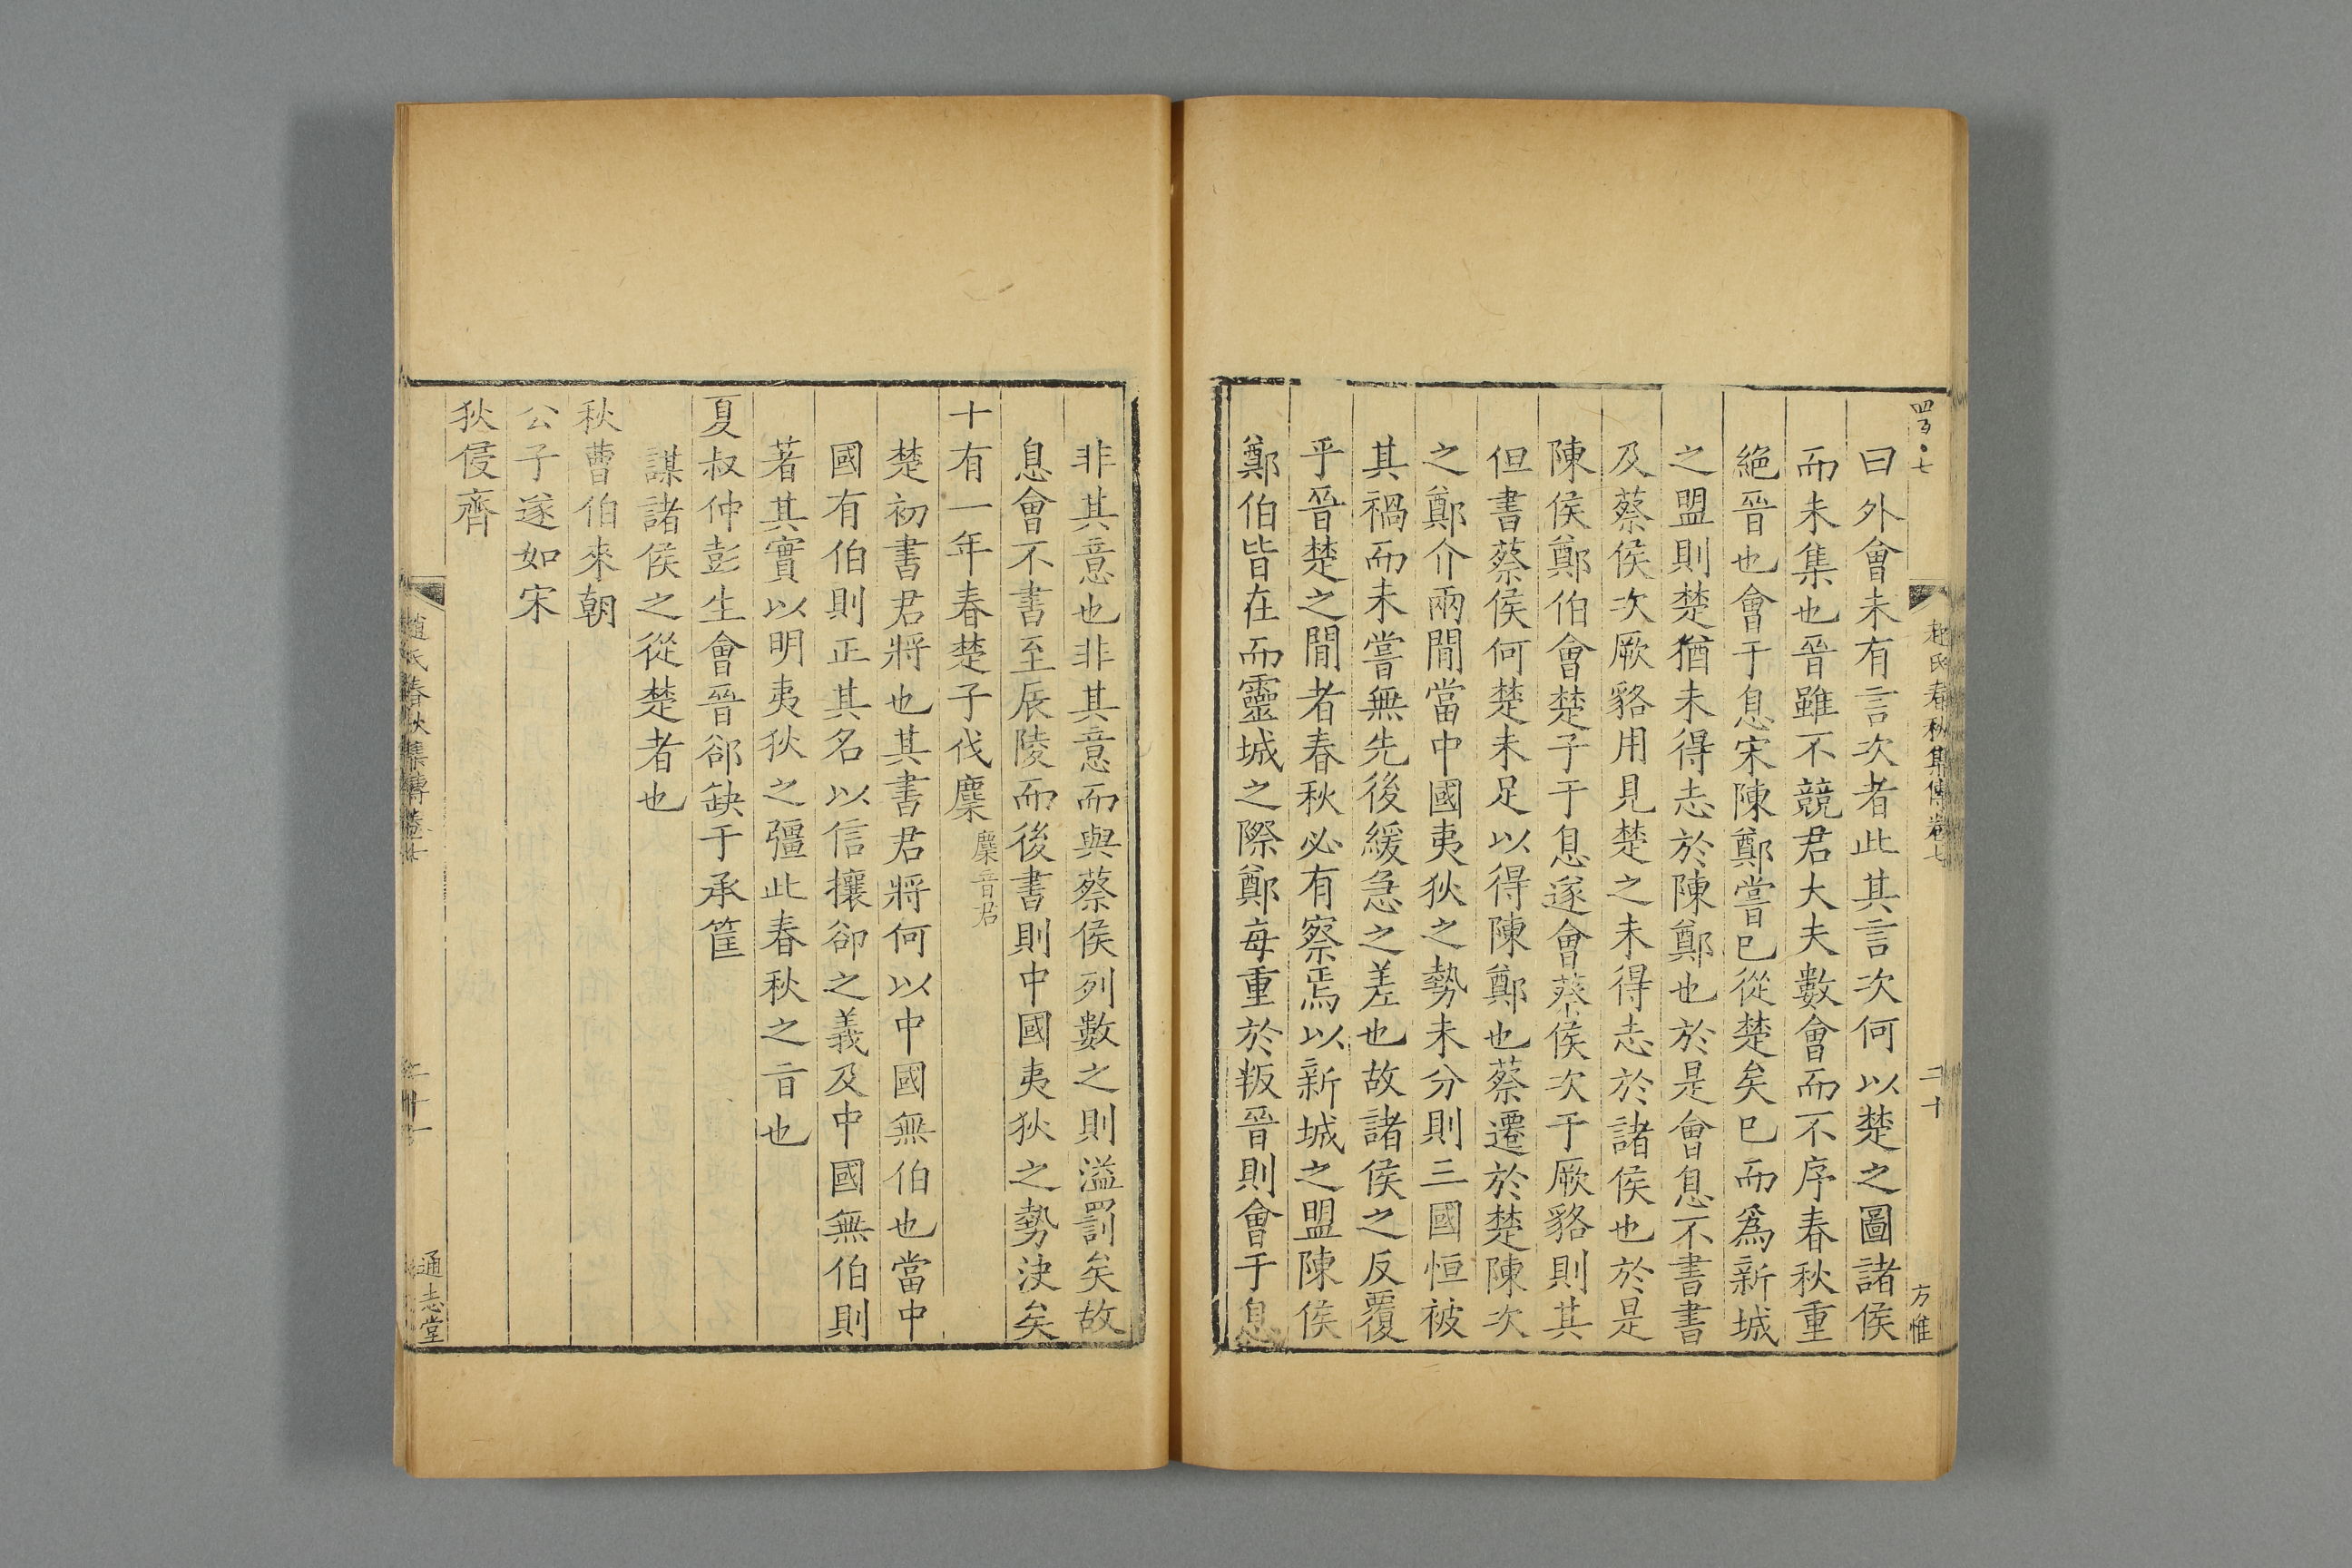 四百·七
趙氏春秋集傳卷七
二十
方惟
曰外會未有言次者此其言次何以楚之圖諸侯
而未集也晉雖不競君大夫數會而不序春秋重
絕晉也會于息宋陳鄭嘗已從楚矣已而爲新城
之盟則楚猶未得志於陳鄭也於是會息不書書
及蔡侯次厥貉用見楚之未得志於諸侯也於是
陳侯鄭伯會楚子于息遂會蔡侯次于厥貉則其
但書蔡侯何楚未足以得陳鄭也蔡遷於楚陳次
之鄭介兩間當中國夷狄之勢未分則三國恒被
其禍而未嘗無先後緩急之差也故諸侯之反覆
乎晉楚之間者春秋必有察焉以新城之盟陳侯
鄭伯皆在而靈城之際鄭每重於叛晉則會于息
非其意也非其意而與蔡侯列數之則溢罰矣故
息會不書至辰陵而後書則中國夷狄之勢決矣
十有一年春楚子伐麇麇音君
楚初書君將也其書君將何以中國無伯也當中
國有伯則正其名以信攘卻之義及中國無伯則
著其實以明夷狄之彊此春秋之旨也
夏叔仲彭生會晉郤缺于承筐
謀諸侯之從楚者也
秋曹伯來朝
公子遂如宋
狄侵齊
趙氏春秋集傳卷七
二十一
通志堂